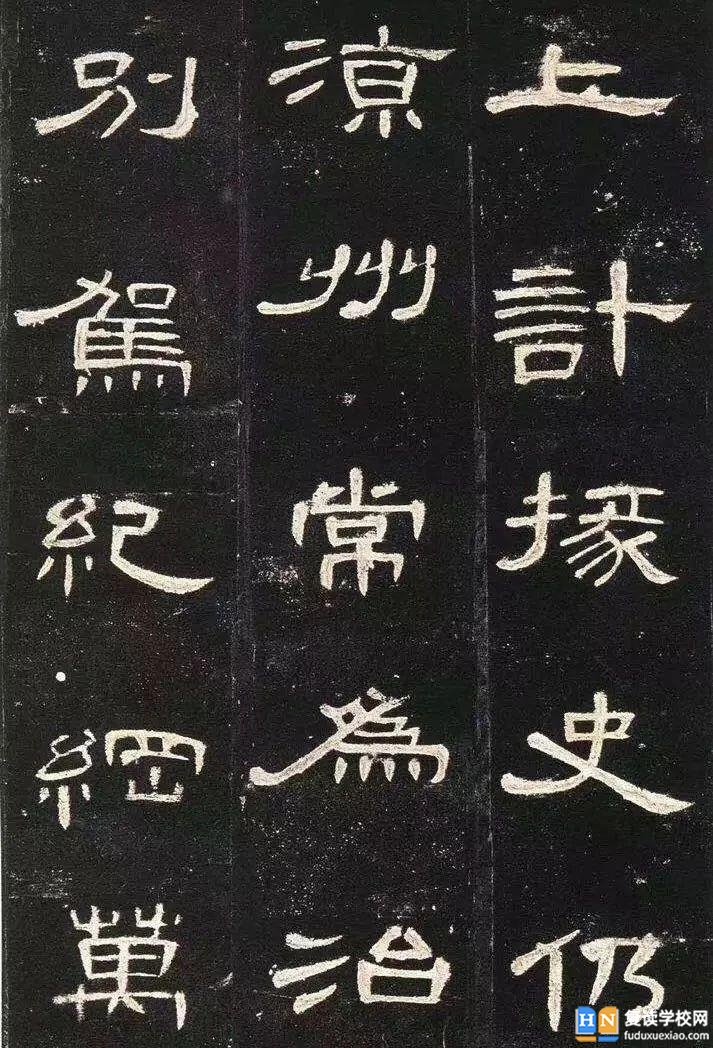 上計掾史仍
涼州常為治
別駕紀綱萬
HN 复读学校网
fuduxuexiao.com